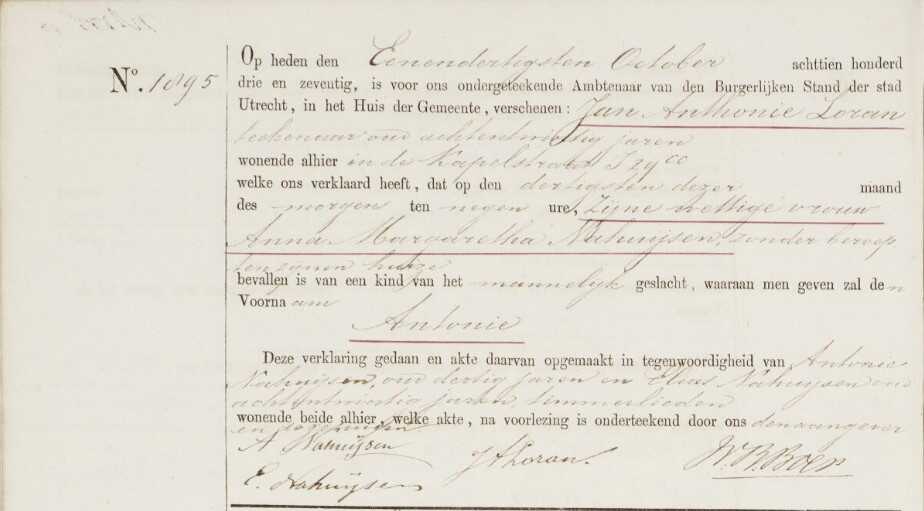 Nº. 1895
Op heden den Eenendertigsten October achttien honderd
drie en zeventig, is voor ons ondergeteekende Ambtenaar van den Burgerlijken Stand der stad
Utrecht, in het Huis der Gemeente, verschenen: Jan Anthonie Loran
teekenaar oud achtentwintig jaren
wonende alhier in de Kapelstraat I 29
welke ons verklaard heeft, dat op den dertigsten dezer maand
des morgen ten negen ure, zijne wettige vrouw
Anna Margaretha Nahuijsen, zonder beroep
ten zijnen huize
bevallen is van een kind van het mannelijk geslacht, waaraan men geven zal den
Voornaam
Antonie
Deze verklaring gedaan en akte daarvan opgemaakt in tegenwoordigheid van Antonie
Nahuijsen, oud dertig jaren en Elias Nahuijsen oud
achtentwintig jaren, timmerlieden
wonende beide alhier, welke akte, na voorlezing is onderteekend door ons den aangever
en de getuigen
A Nahuijsen
JALoran.
W.B.Boer
E. Nahuijsen